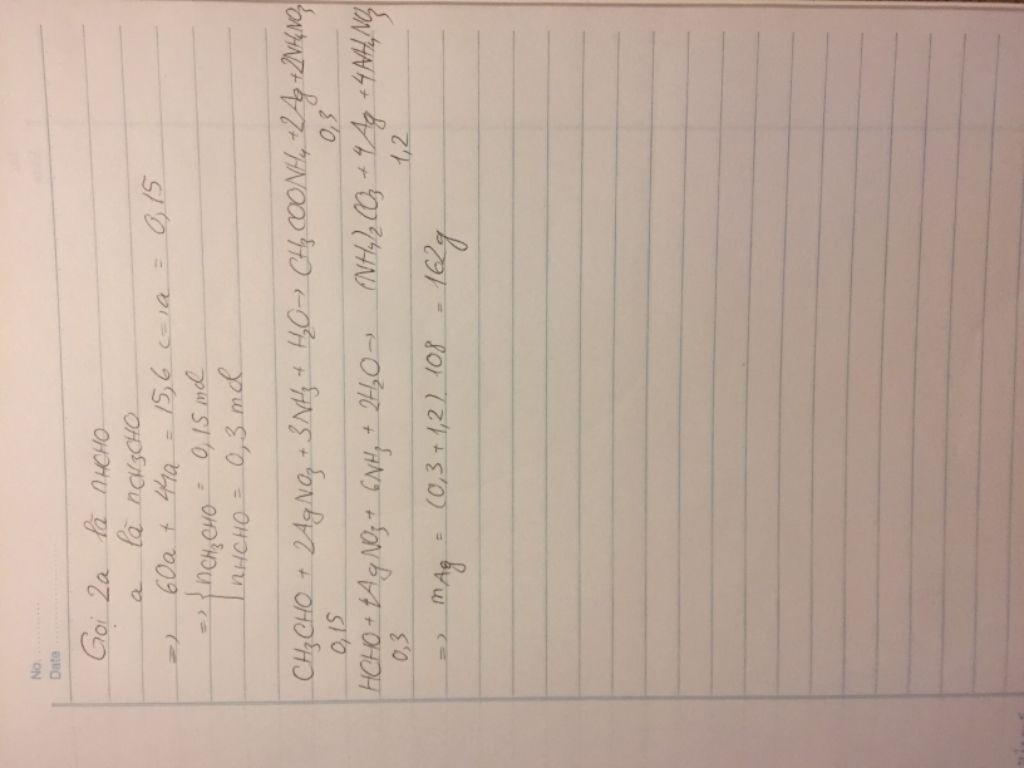 No.
Date
Gọi 2a là nHCHO
a là nCH3CHO
=> 60a + 44a = 15,6 <=> a = 0,15
=> { nCH3CHO = 0,15 mol
nHCHO = 0,3 mol
CH3CHO + 2AgNO3 + 3NH3 + H2O → CH3COONH4 + 2Ag + 2NH4NO3
0,15 0,3
HCHO + 4AgNO3 + 6NH3 + 2H2O → (NH4)2CO3 + 4Ag + 4NH4NO3
0,3 1,2
=> mAg = (0,3 + 1,2) 108 = 162g